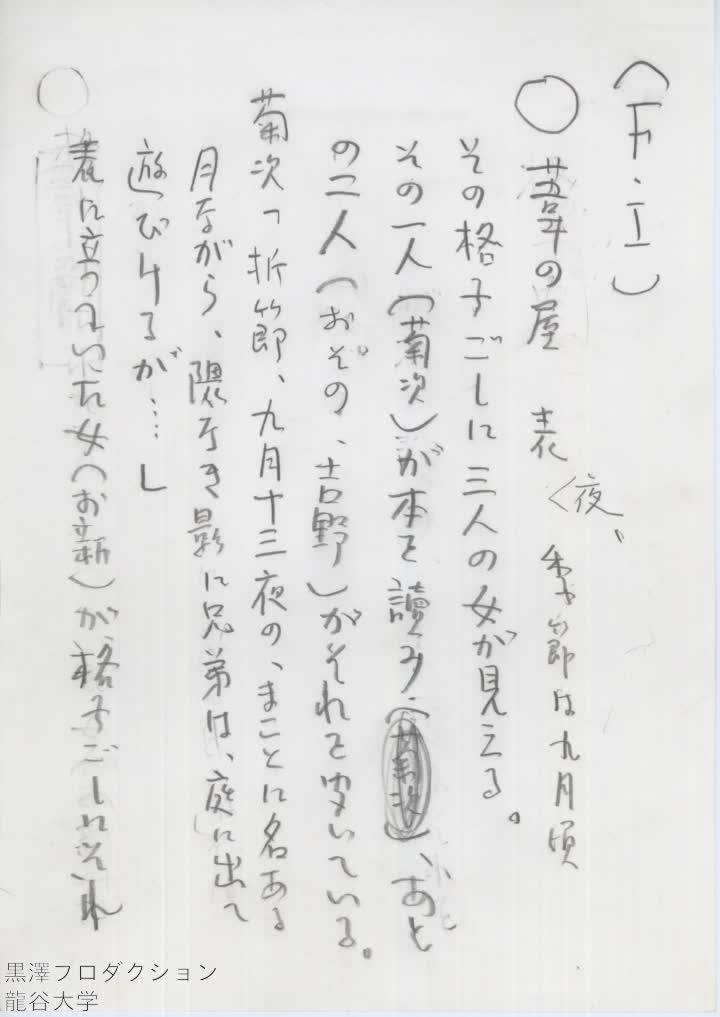 (F・I)
○ 葦の屋 表
〈夜、季節は九月頃
その格子ごしに三人の女が見える。
その一人(菊次)が本を讀み(菊次)、あと
の二人(おその、吉野)がそれを聞いている。
菊次「折節、九月十三夜の、まことに名ある
月ながら、隈なき影に兄弟は、庭に出て
遊びけるが……」
○
表に立っていた女(お新)が格子ごしにそれ
黒澤プロダクション
龍谷大学